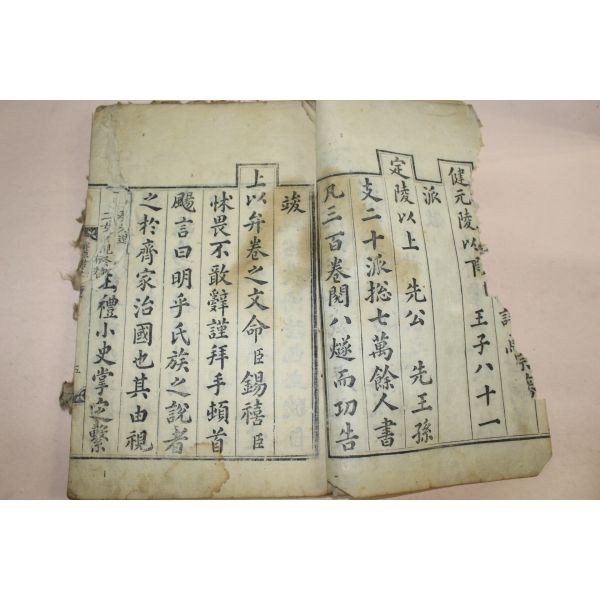 健元陵以下 王子八十一
派
定陵以上 先公 先王孫
支二十派摠七萬餘人書
凡三百卷閱八燧而功告
竣
上以弁卷之文命臣錫禧臣
怵畏不敢辭謹拜手頓首
颺言曰明乎氏族之說者
之於齊家治國也其由視
禮小史掌定繫
五